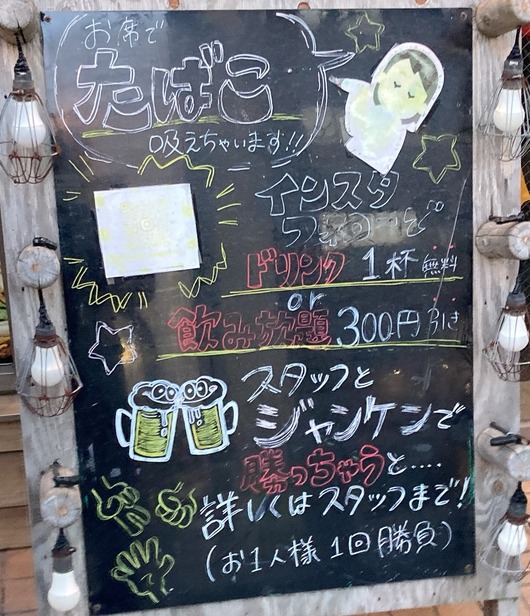 お席で
たばこ
吸えちゃいます!!
インスタ
フォローで
ドリンク 1杯 無料
or
飲み放題 300円引き
スタッフと
ジャンケンで
勝っちゃうと....
詳しくはスタッフまで!
(お1人様 1回勝負)